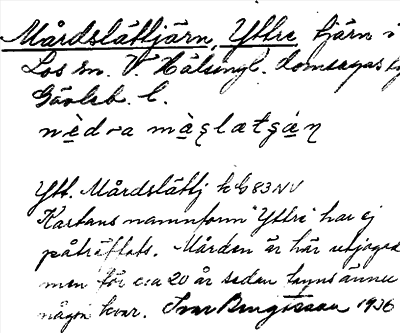 Mårdslåttjärn, Yttre tjärn i
Los sn. V. Hälsingl. domsagas
Gävleb. l.
nèdra màşlætşǽɳ
Ytt. Mårdslåttj k b 83 NV
Kartans namnform "Yttre" har ej
påträffats. Mården är här utjagad
men för c:a 20 år sedan fanns ännu
någon kvar. Ivar Bengtsson 1936